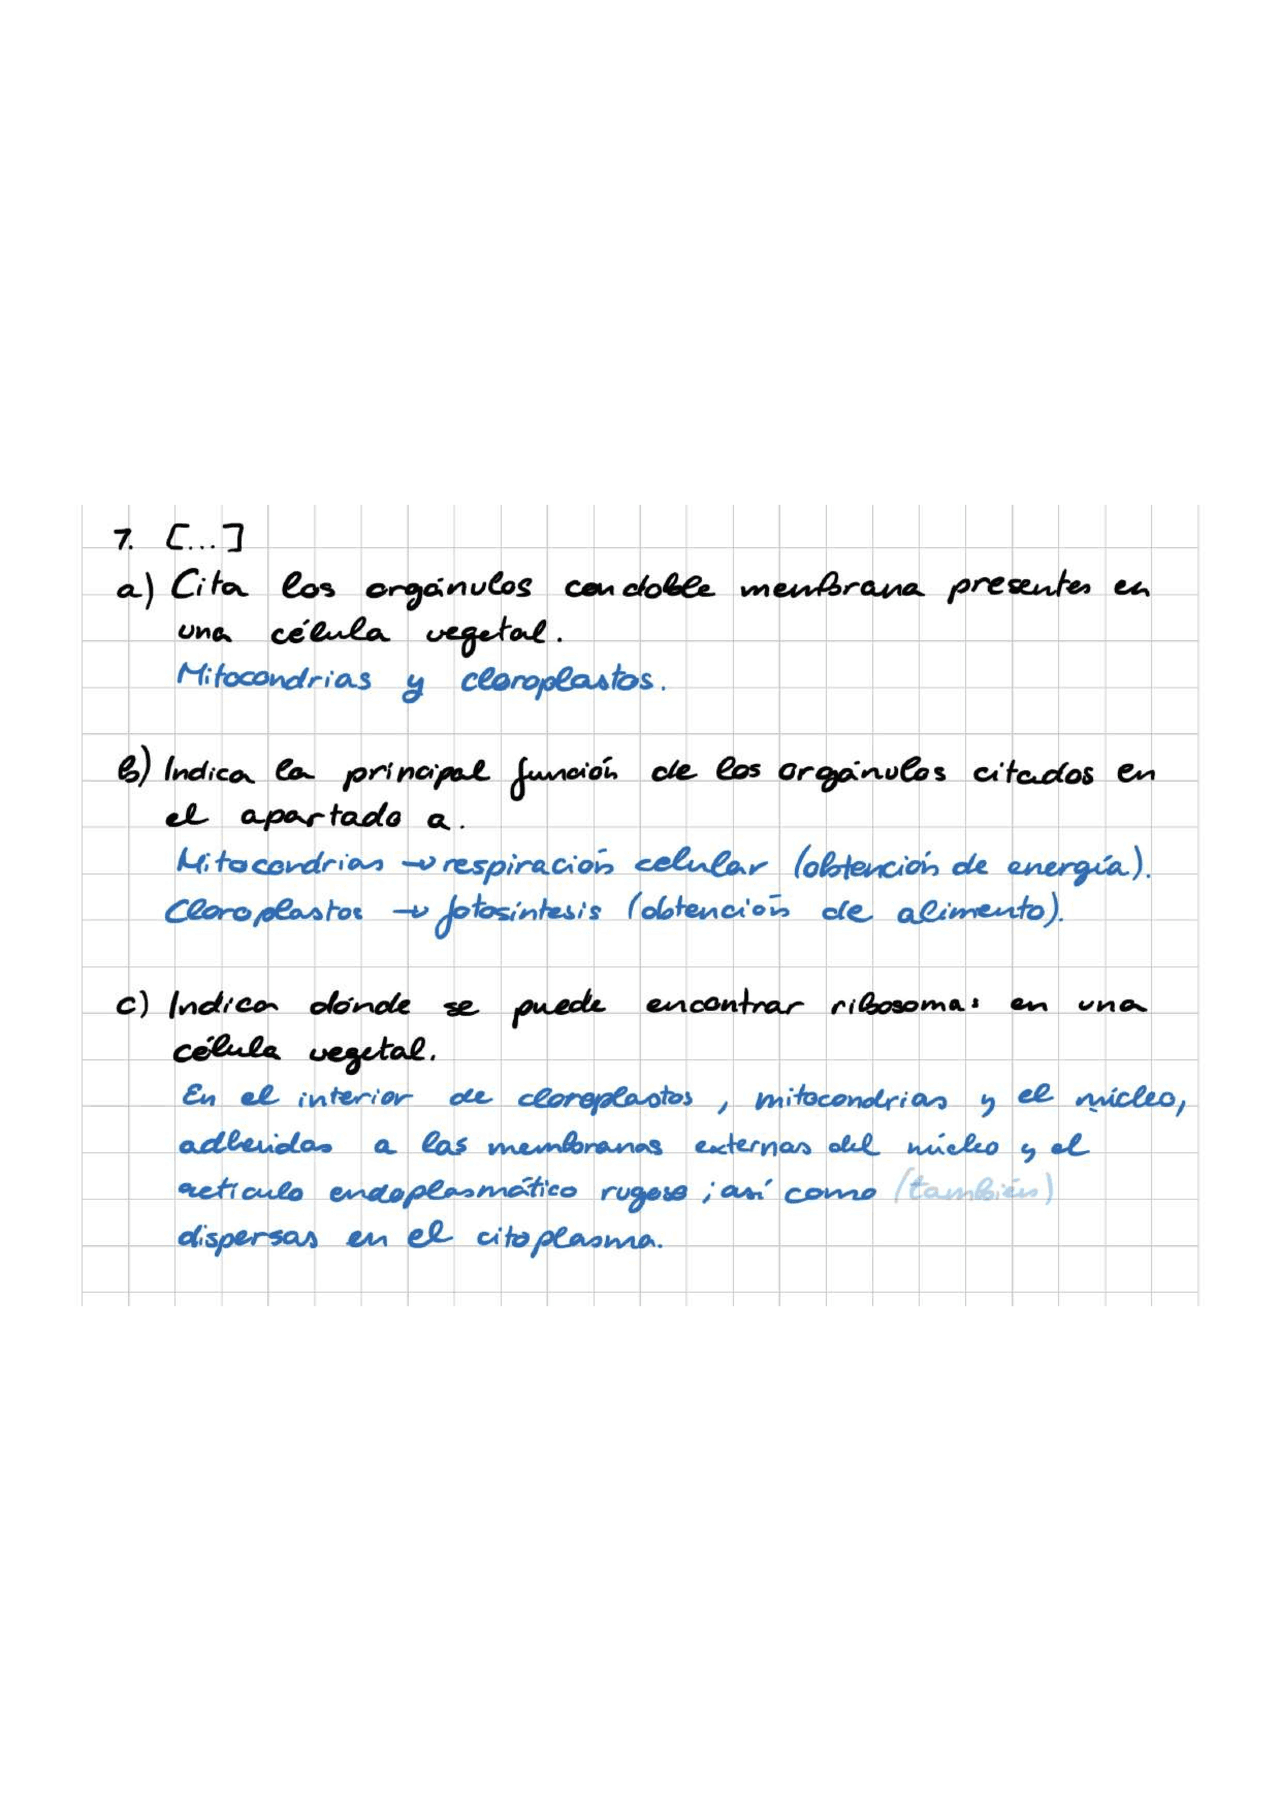 7. [...]
a) Cita los orgánulos con doble membrana presentes en
una célula vegetal.
Mitocondrias y cloroplastos.
b) Indica la principal función de los orgánulos citados en
el apartado a.
Mitocondrias → respiración celular (obtención de energía).
Cloroplastos → fotosíntesis (obtención de alimento).
c) Indica dónde se puede encontrar ribosomas en una
célula vegetal.
En el interior de cloroplastos, mitocondrias y el núcleo,
adheridas a las membranas externas del núcleo y el
retículo endoplasmático rugoso; así como (también)
dispersas en el citoplasma.